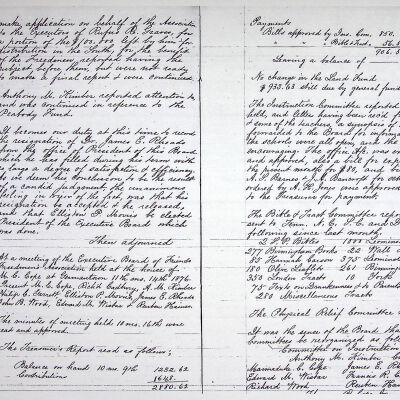 make application on behalf of the Association
to the Executors of Rufus R. Graves, for
a portion of the $100,000 left by him for
distribution in the South, for the benefit
of the Freedmen, reported having the
subject before them, but were not ready
to make a final report & were continued.
Anthony M. Kimber reported attention to
and was continued in reference to the
Peabody Fund.
It becomes our duty at this time to record
the resignation of Dr. James E. Rhoads
from the office of President of this Board
which he has filled during his term with
so large a degree of satisfaction & efficiency,
as we deem his conclusion to be the result
of a candid judgement, the unanimous
feeling in view of the fact, was that his
resignation be accepted & he released,
and that Elliston P. Morris be elected
President of the Executive Board which
was done.
Then adjourned
At a meeting of the Executive Board of Friends
Freedmen's Association held at the house of
M. C. Cope in Germantown, 11 mo. 14th 1876.
Present M. C. Cope, Richd Cadbury, A. M. Kimber
Philip C. Garrett, Elliston P. Morris, James E. Rhoads
John B. Wood, Edward M. Wistar & Reuben Haines
The minutes of meeting held 10 mo. 16th were
read and approved.
The Treasurer's Report read as follows;
Balance on hand 10 mo. 9th 1232.62
Contributions 1648.
2880.62
Payments
Bills approved by Ins. Com. 850.
" " " Bible & Tract. 56.
906.
Leaving a balance of
No change in the Land Fund
$933.63 still due by general fund
The Instruction Committee reported
held, and letter having been sent
some of the teachers, a synopsis of
forwarded to the Board for information
the schools were all open and the
encouraging. The office rent was
and approved, also a bill for
the present month for $80, and
A. S. Barnes & J. Bancroft for
ordered by A. H. Jones were approved
to the Treasurer for payment.
The Bible & Tract Committee report
sent to Penn. N. C. & S. C. and
following since last month,
2 S. P. Bibles 1888 Lessons
277 Birmingham Books 20 Wall
85 Hannah Carson 375
180 Olyn 261
350 London Tracts 10 Friends
75 Foyle on Drunkenness & to Parents
280 Miscellaneous Tracts
The Physical Relief Committee
It was the sense of the Board that
Committees be reorganized as follows
Committee on Instruction
Anthony M. Kimber
Marmaduke C. Cope James E. Rhoads
Edward M. Wistar Francis R. Cope
Richard Wood Reuben Haines